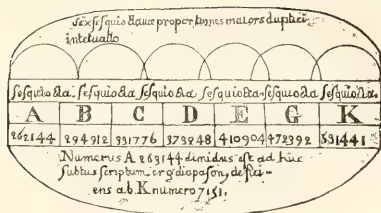 sex sesquioctauæ proportiones maiors duplici
interuallo
sesquiocta. sesquiocta sesquiocta sesquiocta. sesquiocta. sesquiocta.
A B C D E G K
262144 294912 331776 373248 410904 472392 531441
Numerus A 263144 dimidius est ad hūc
subtus scriptum ergo diapason, defici-
ens ab K numero 7151.